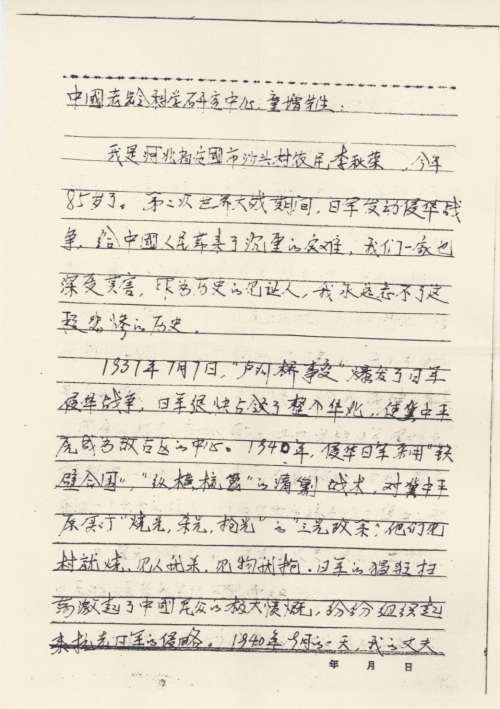 中國老龄科学研究中心，童增先生：
我是河北省安國市汾头村农民李秋荣，今年
85岁了。第二次世界大战期间，日军发动侵华战
争，给中國人民带来了沉重的灾难，我们一家也
深受其害，作为历史的见证人，我永远忘不了这
段悲惨的历史。
1937年7月7日，"卢沟桥事变"爆发了日军
侵华战争，日军很快占领了整个华北，使冀中平
原成为敌占区的中心。1940年，侵华日军采用"铁
壁合围"，"纵横梳篦"的清剿战术，对冀中平
原实行"烧光，杀光，抢光"的"三光政策"；他们见
村就烧，见人就杀，见物就抢。日军的猖狂扫
荡激起了中國民众的极大愤慨，纷纷组织起
来抗击日军的侵略。1940年9月的一天，我的丈夫
年 月 日